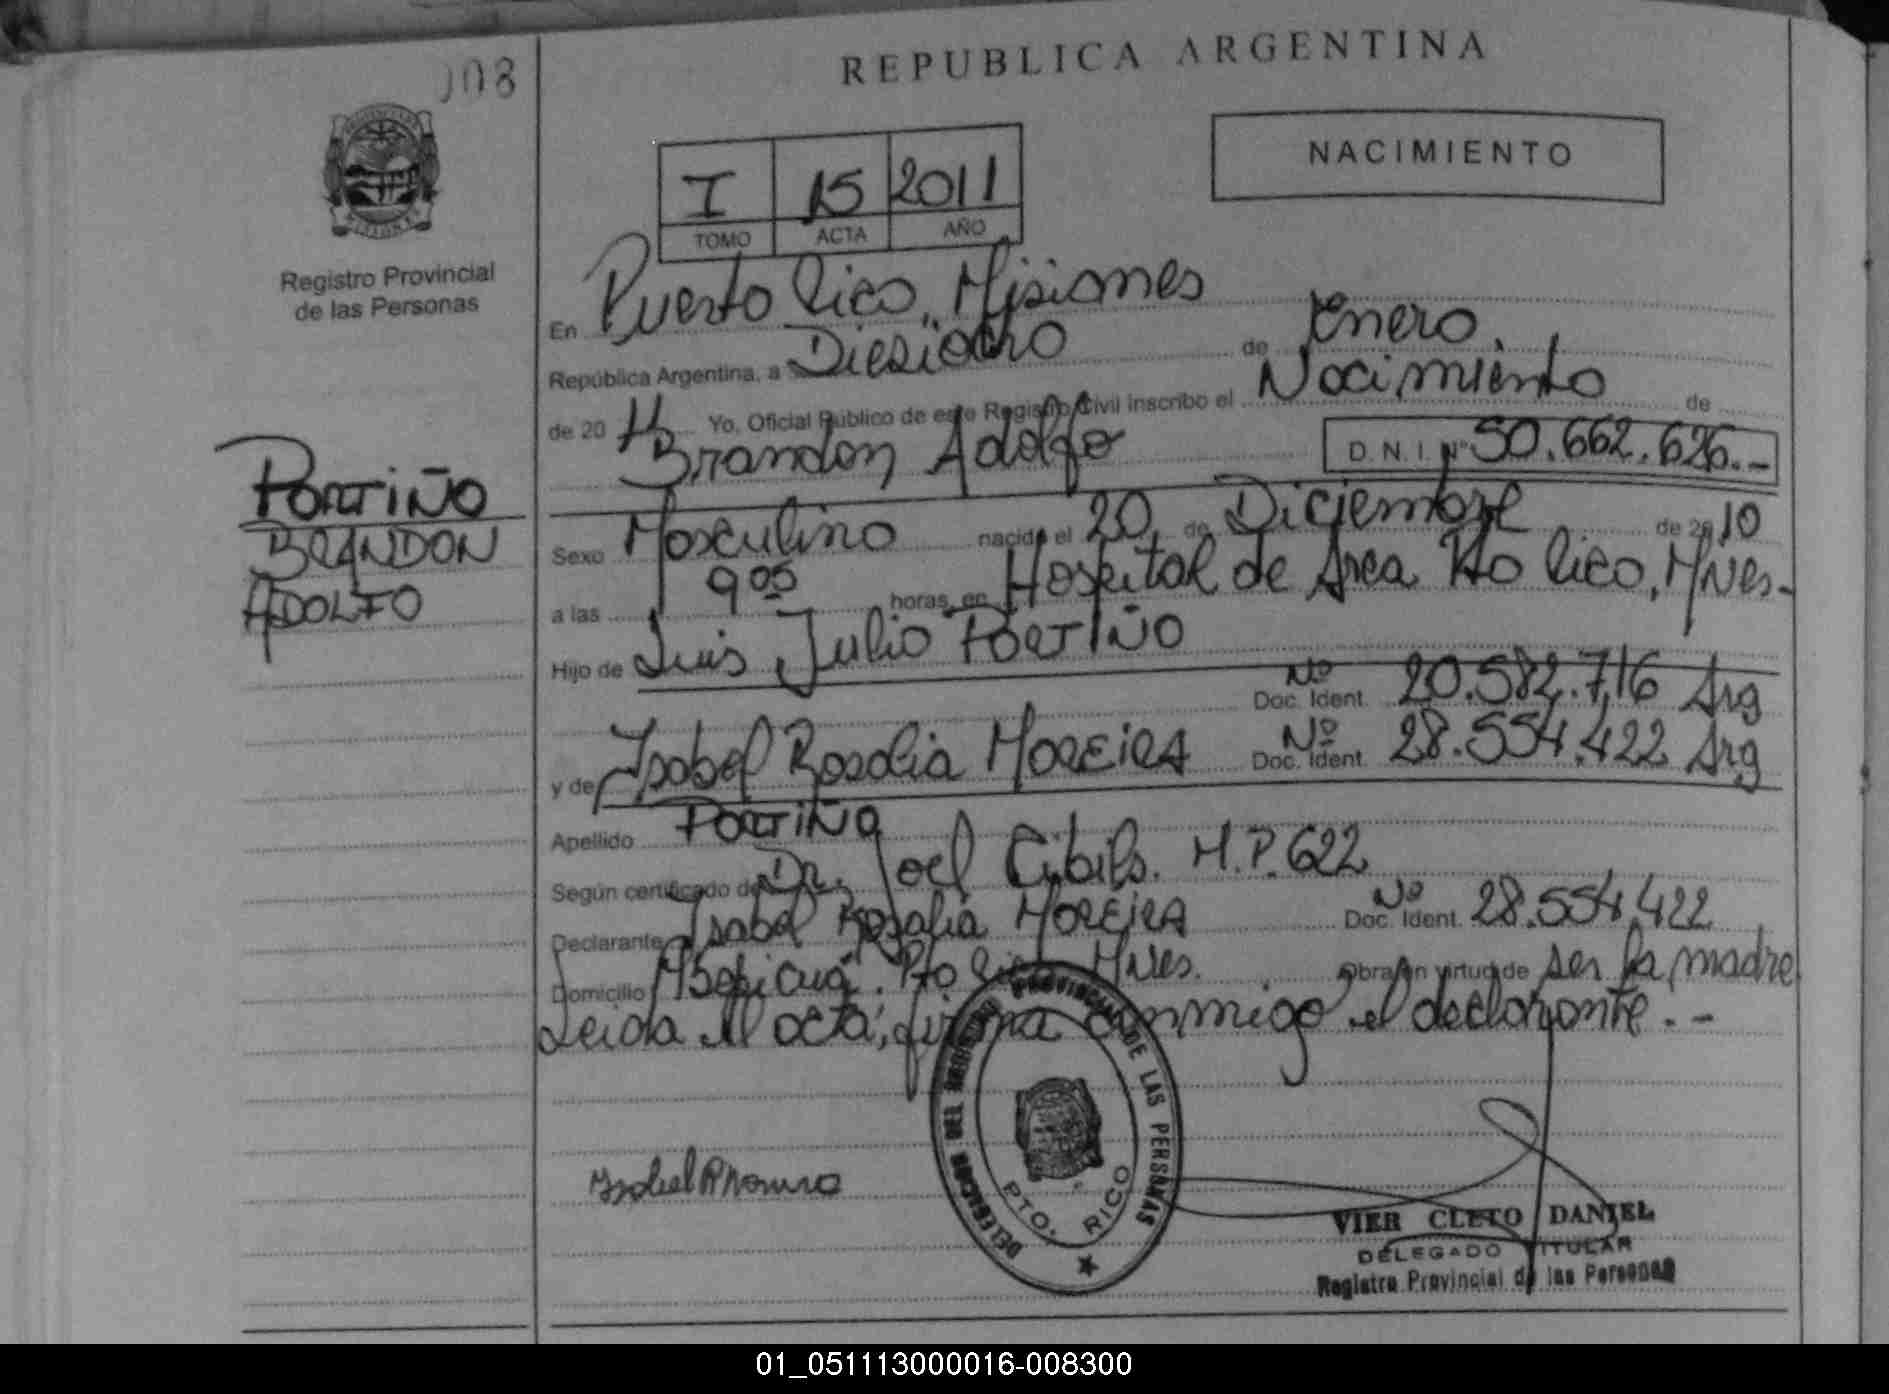 008
REPUBLICA ARGENTINA
NACIMIENTO
I 15 2011
TOMO ACTA AÑO
Registro Provincial
de las Personas
En Puerto Rico, Misiones
República Argentina, a Diesiocho de Enero,
de 20 11 Yo, Oficial Público de este Registro Civil inscribo el Nacimiento de
Brandon Adolfo D.N.I. Nº 50.662.626.-
PORTIÑO
BRANDON
ADOLFO
Sexo Masculino nacido el 20 de Diciembre de 2010
a las 9 05 horas, en Hospital de Area Pto Rico, Mnes.-
Hijo de Luis Julio PORTIÑO
Nº Doc. Ident. 20.582.716 Arg
y de Isabel Rosalia MOREIRA Nº Doc. Ident. 28.554.422 Arg
Apellido PORTIÑO
Según certificado de Dr. Joel Cibils. M.P. 622
Declarante Isabel Rosalia MOREIRA Nº Doc. Ident. 28.554.422
Domicilio Mbopicuá. Pto Rico Mnes. Obra en virtud de ser la madre
Leida el acta, firma conmigo el declarante.-
DELEGACION DEL REGISTRO PROVINCIAL DE LAS PERSONAS
PTO. RICO
Isabel R Moreira
VIER CLETO DANIEL
DELEGADO TITULAR
Registro Provincial de las Personas
01_051113000016-008300